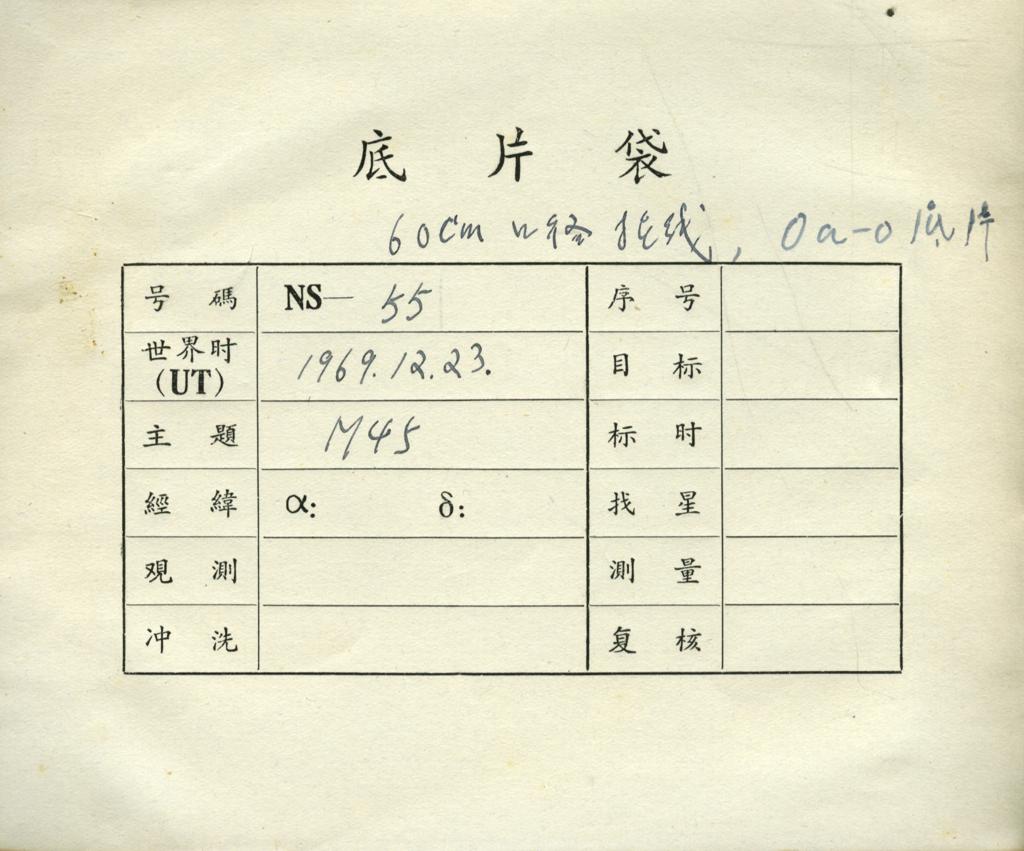 底片袋
60cm 口径 , Oa-O 底片
号碼 NS— 55 序号
世界时 (UT) 1969.12.23. 目标
主題 M45 标时
經緯 α: δ: 找星
观測 測量
冲洗 复核